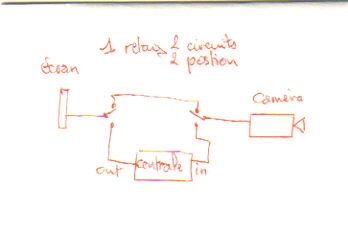 1 relais 2 circuits
2 position
écran
caméra
out centrale in